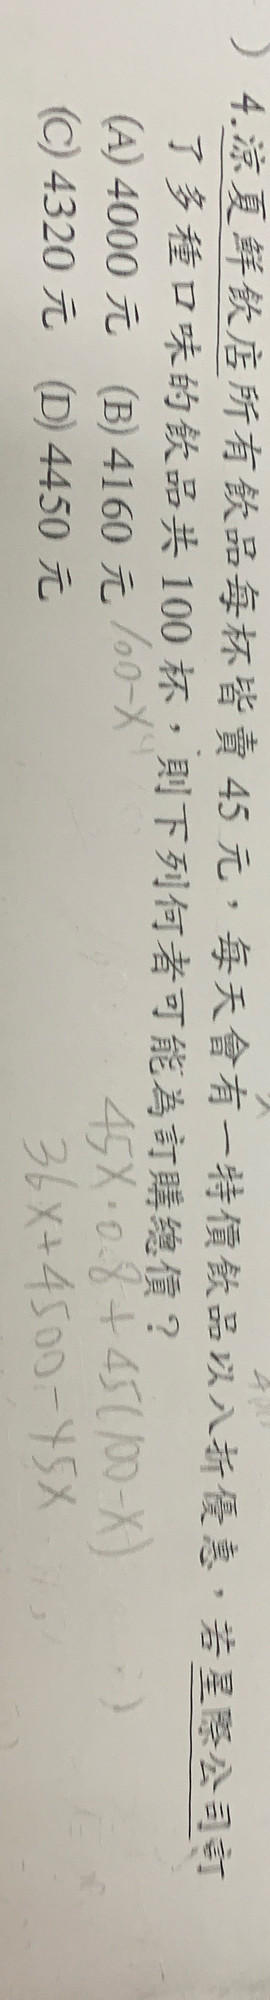 ) 4.涼夏鮮飲店所有飲品每杯皆賣 45 元，每天會有一特價飲品以八折優惠，若星際公司訂
了多種口味的飲品共 100 杯，則下列何者可能為訂購總價？
(A) 4000 元 (B) 4160 元
(C) 4320 元 (D) 4450 元
100-X
45X·0.8+45(100-X)
36X+4500-45X